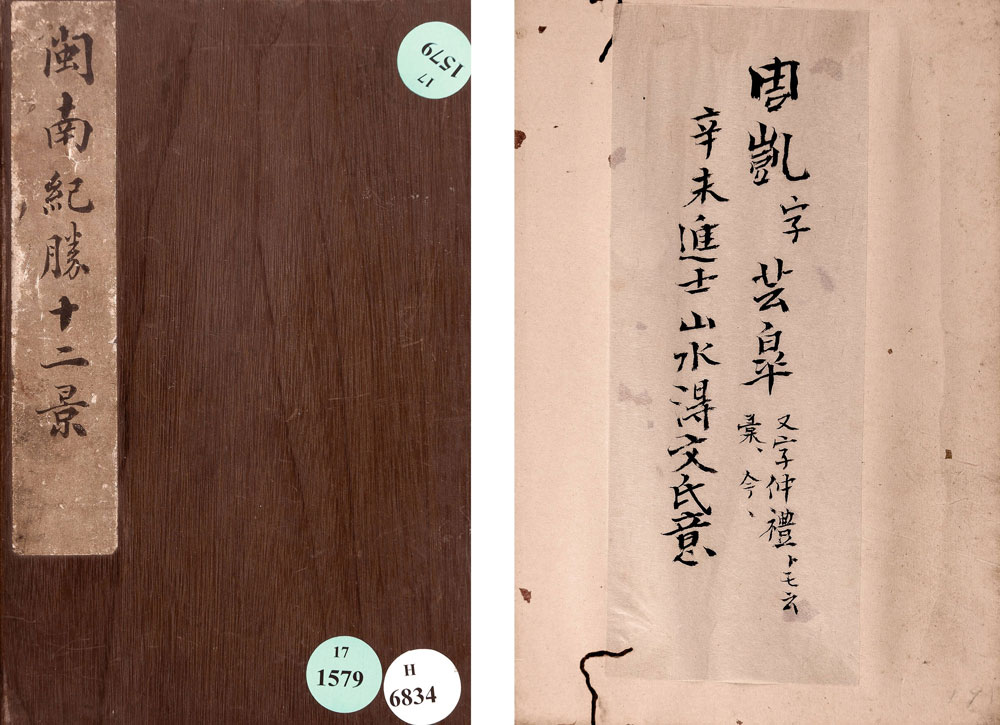 閩南紀勝十二景
17
1579
17
1579
H
6834
周凱字芸皐
又字仲禮トモ云
彙、今、
辛未進士山水得文氏意